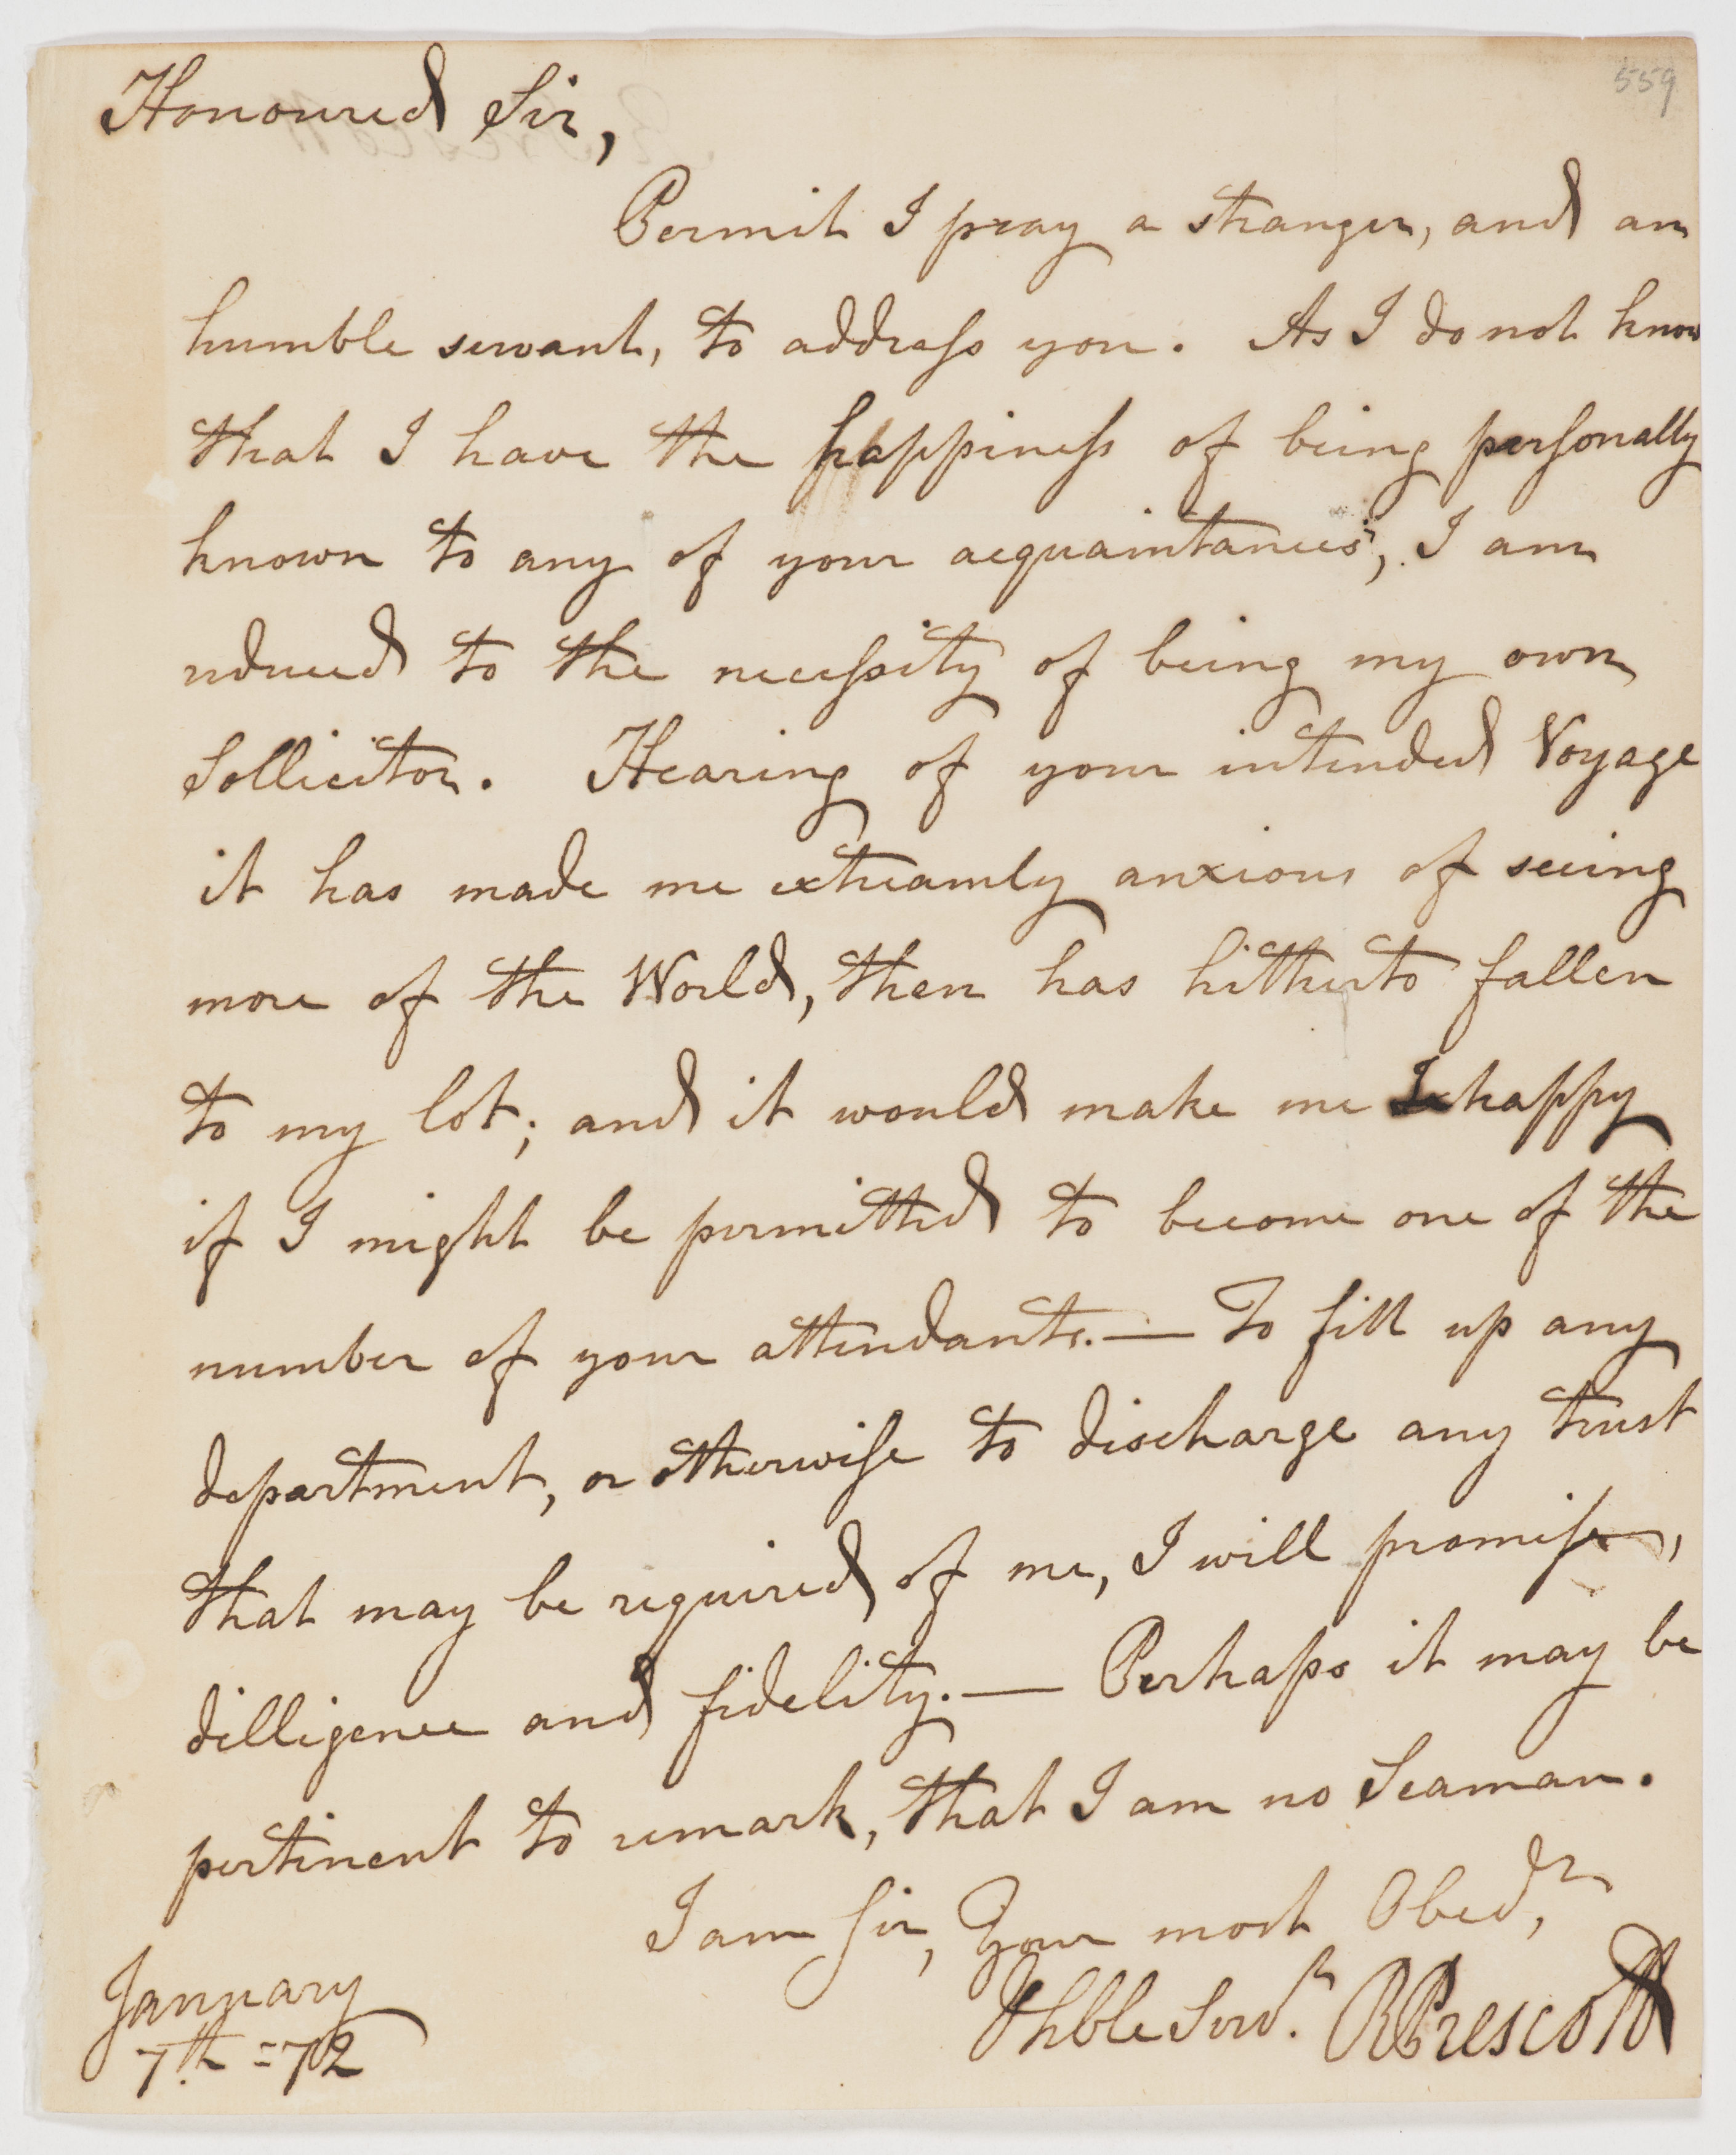 559
Honoured Sir,
Permit I pray a stranger, and an
humble servant, to address you. As I do not know
that I have the happiness of being personally
known to any of your acquaintances, I am
reduced to the necessity of being my own
Sollicitor. Hearing of your intended Voyage
it has made me extreamly anxious of seeing
more of the World, then has hitherto fallen
to my lot; and it would make me happy
if I might be permitted to become one of the
number of your attendants.— To fill up any
department, or otherwise to discharge any trust
that may be required of me, I will promise,
dilligence and fidelity.— Perhaps it may be
pertinent to remark, that I am no Seaman.
I am Sir, Your most Obedt,
Hhble Servt. RPrescott
January
7th =72